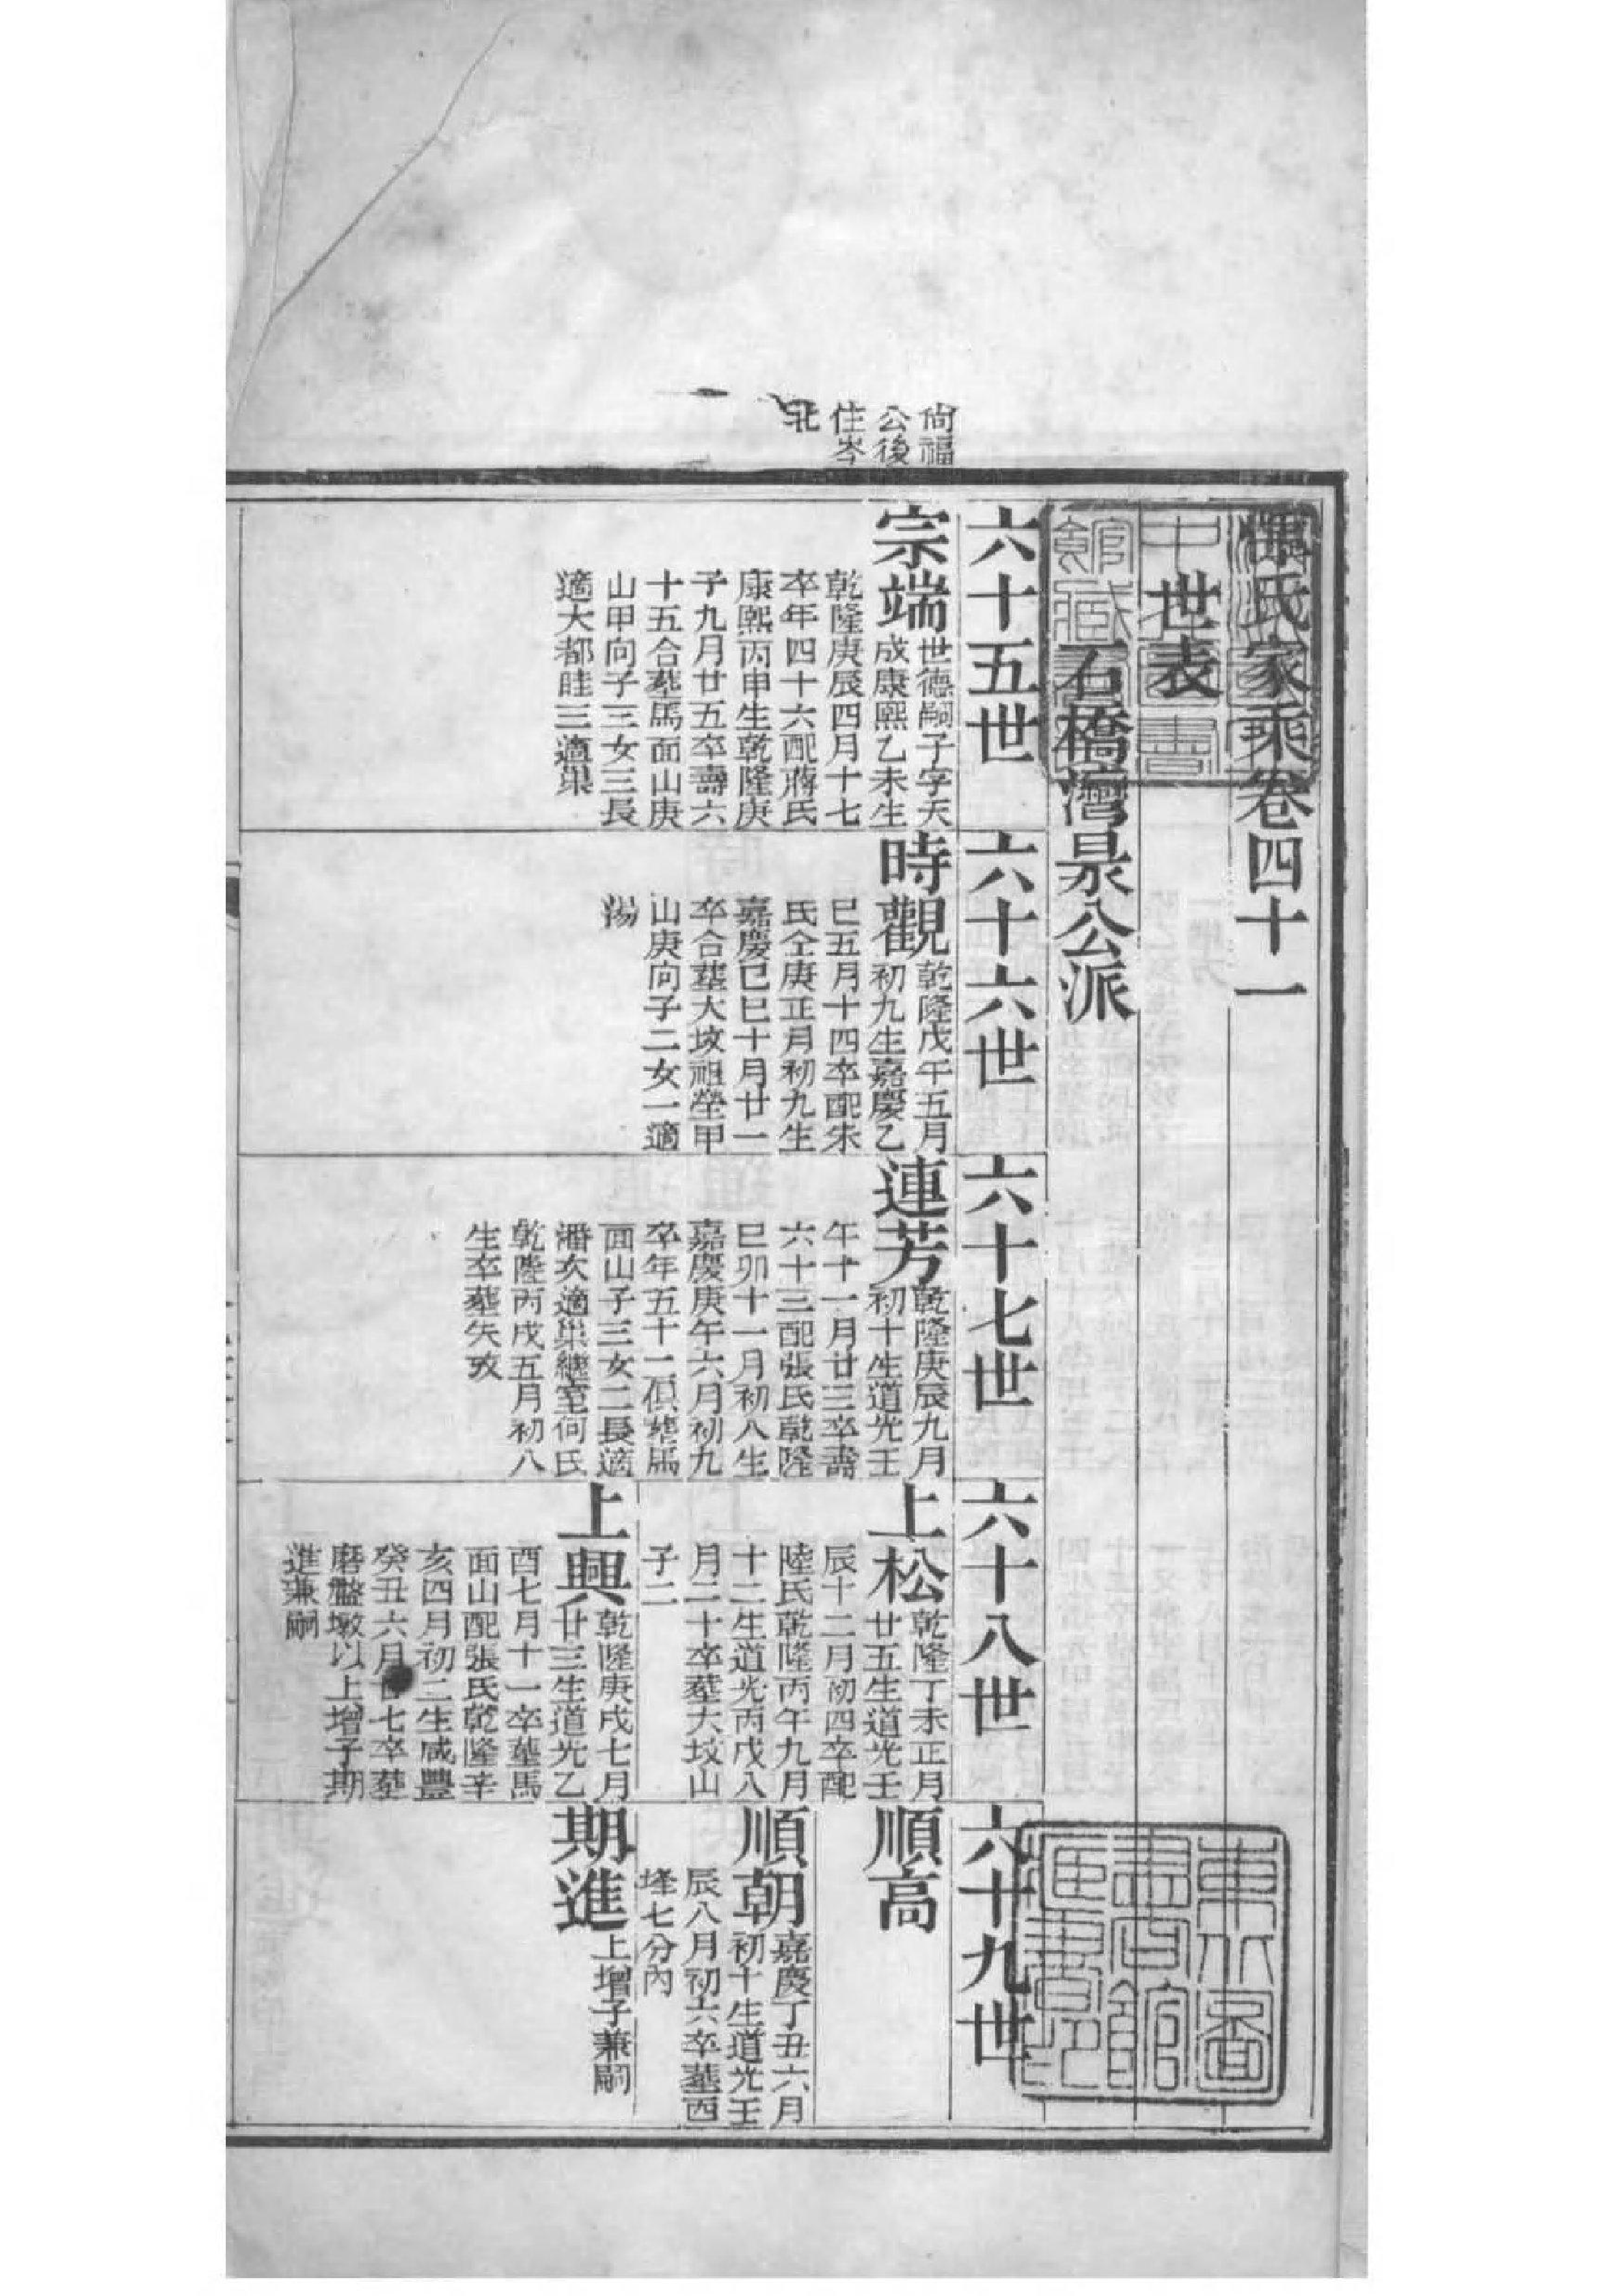 惲氏家乘卷四十一
世表
石橋灣泉公派
尙福
公後
住岑
北
六十五世
宗端
世德嗣子字天
成康熙乙未生
乾隆庚辰四月十七
卒年四十六配蔣氏
康熙丙申生乾隆庚
子九月廿五卒壽六
十五合葬馬面山庚
山甲向子三女三長
適大都眭三適巢
六十六世
時觀
乾隆戊午五月
初九生嘉慶乙
巳五月十四卒配朱
氏仝庚正月初九生
嘉慶己巳十月廿一
卒合葬大坟祖塋甲
山庚向子二女一適
湯
六十七世
連芳
乾隆庚辰九月
初十生道光壬
午十一月廿三卒壽
六十三配張氏乾隆
己卯十一月初八生
嘉慶庚午六月初九
卒年五十二俱葬馬
面山子三女二長適
潘次適巢繼室何氏
乾隆丙戌五月初八
生卒葬失攷
六十八世
上松
乾隆丁未正月
廿五生道光壬
辰十二月初四卒配
陸氏乾隆丙午九月
十二生道光丙戌八
月二十卒葬大坟山
子二
上興
乾隆庚戌七月
廿三生道光乙
酉七月十一卒葬馬
面山配張氏乾隆辛
亥四月初二生咸豐
癸丑六月七卒葬
磨盤墩以上增子期
進兼嗣
六十九世
順高
順朝
嘉慶丁丑六月
初十生道光壬
辰八月初六卒葬西
塳七分內
期進
上增子兼嗣